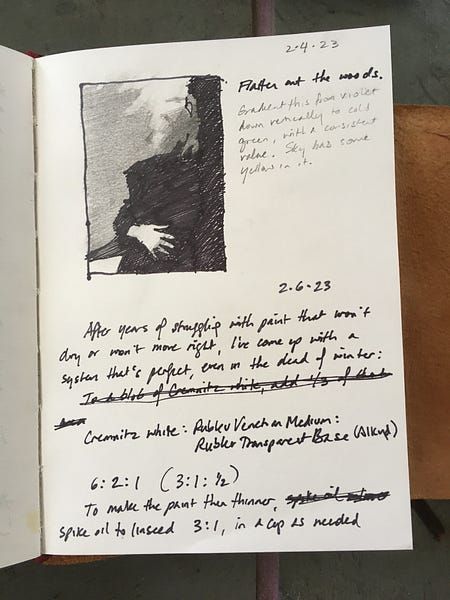 2.4.23
Flatten out the woods.
Gradient this from violet
down vertically to cold
green, with a consistent
value. Sky has some
yellow in it.
2.6.23
After years of struggling with paint that won't
dry or won't move right, I've come up with a
system that's perfect, even in the dead of winter:
To a blob of Cremnitz white, add 1/3 of that
Cremnitz white: Rublev Venetian Medium:
Rublev Transparent Base (Alkyd)
6:2:1 (3:1:½)
To make the paint then thinner, spike oil
spike oil to linseed 3:1, in a cup as needed